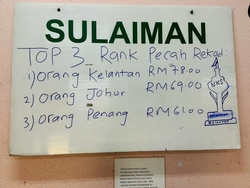 SULAIMAN
TOP 3 Rank Pecah Rekod:
1) Orang Kelantan RM 78.00
2) Orang Johor RM 69.00
3) Orang Penang RM 61.00
NKS